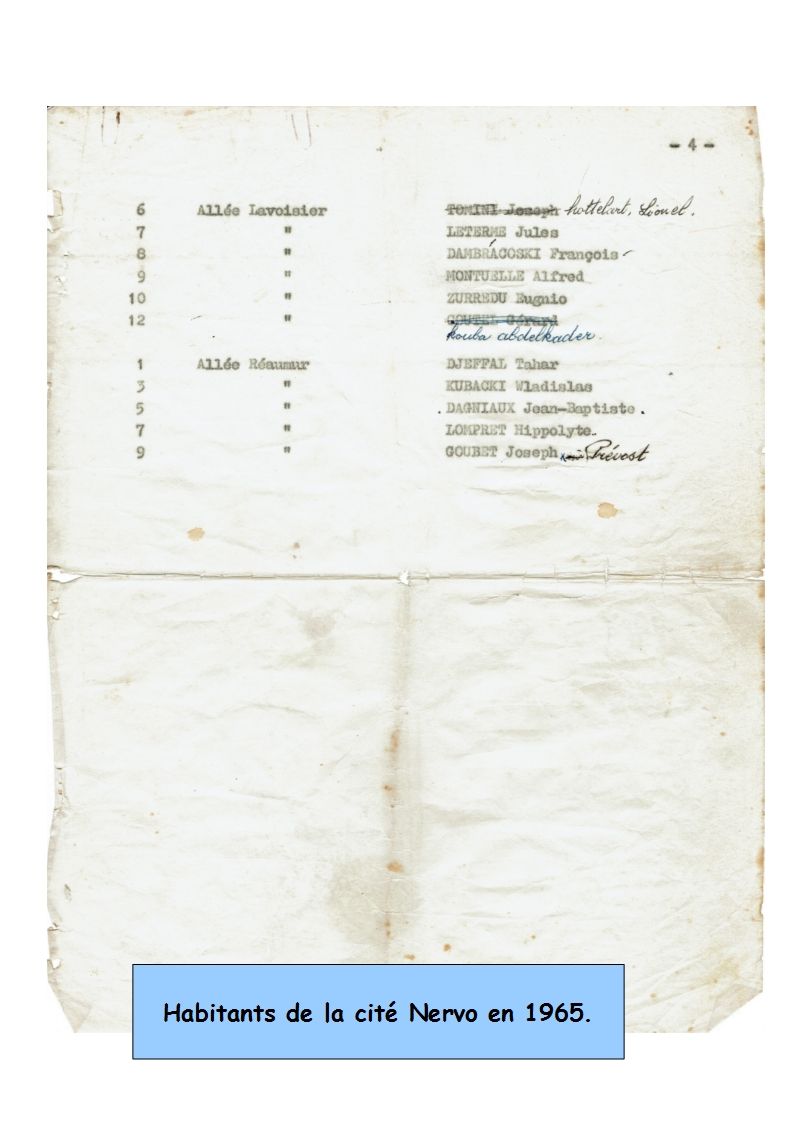 - 4 -
6 Allée Lavoisier TOMINI Joseph hottelart, Lionel.
7 " LETERME Jules
8 " DAMBRACOSKI François
9 " MONTUELLE Alfred
10 " ZURREDU Eugnio
12 " GOUTEL Gérard
kouba abdelkader.
1 Allée Réaumur DJEFFAL Tahar
3 " KUBACKI Wladislas
5 " DAGNIAUX Jean-Baptiste.
7 " LOMPRET Hippolyte.
9 " GOUBET Joseph Prévost
Habitants de la cité Nervo en 1965.